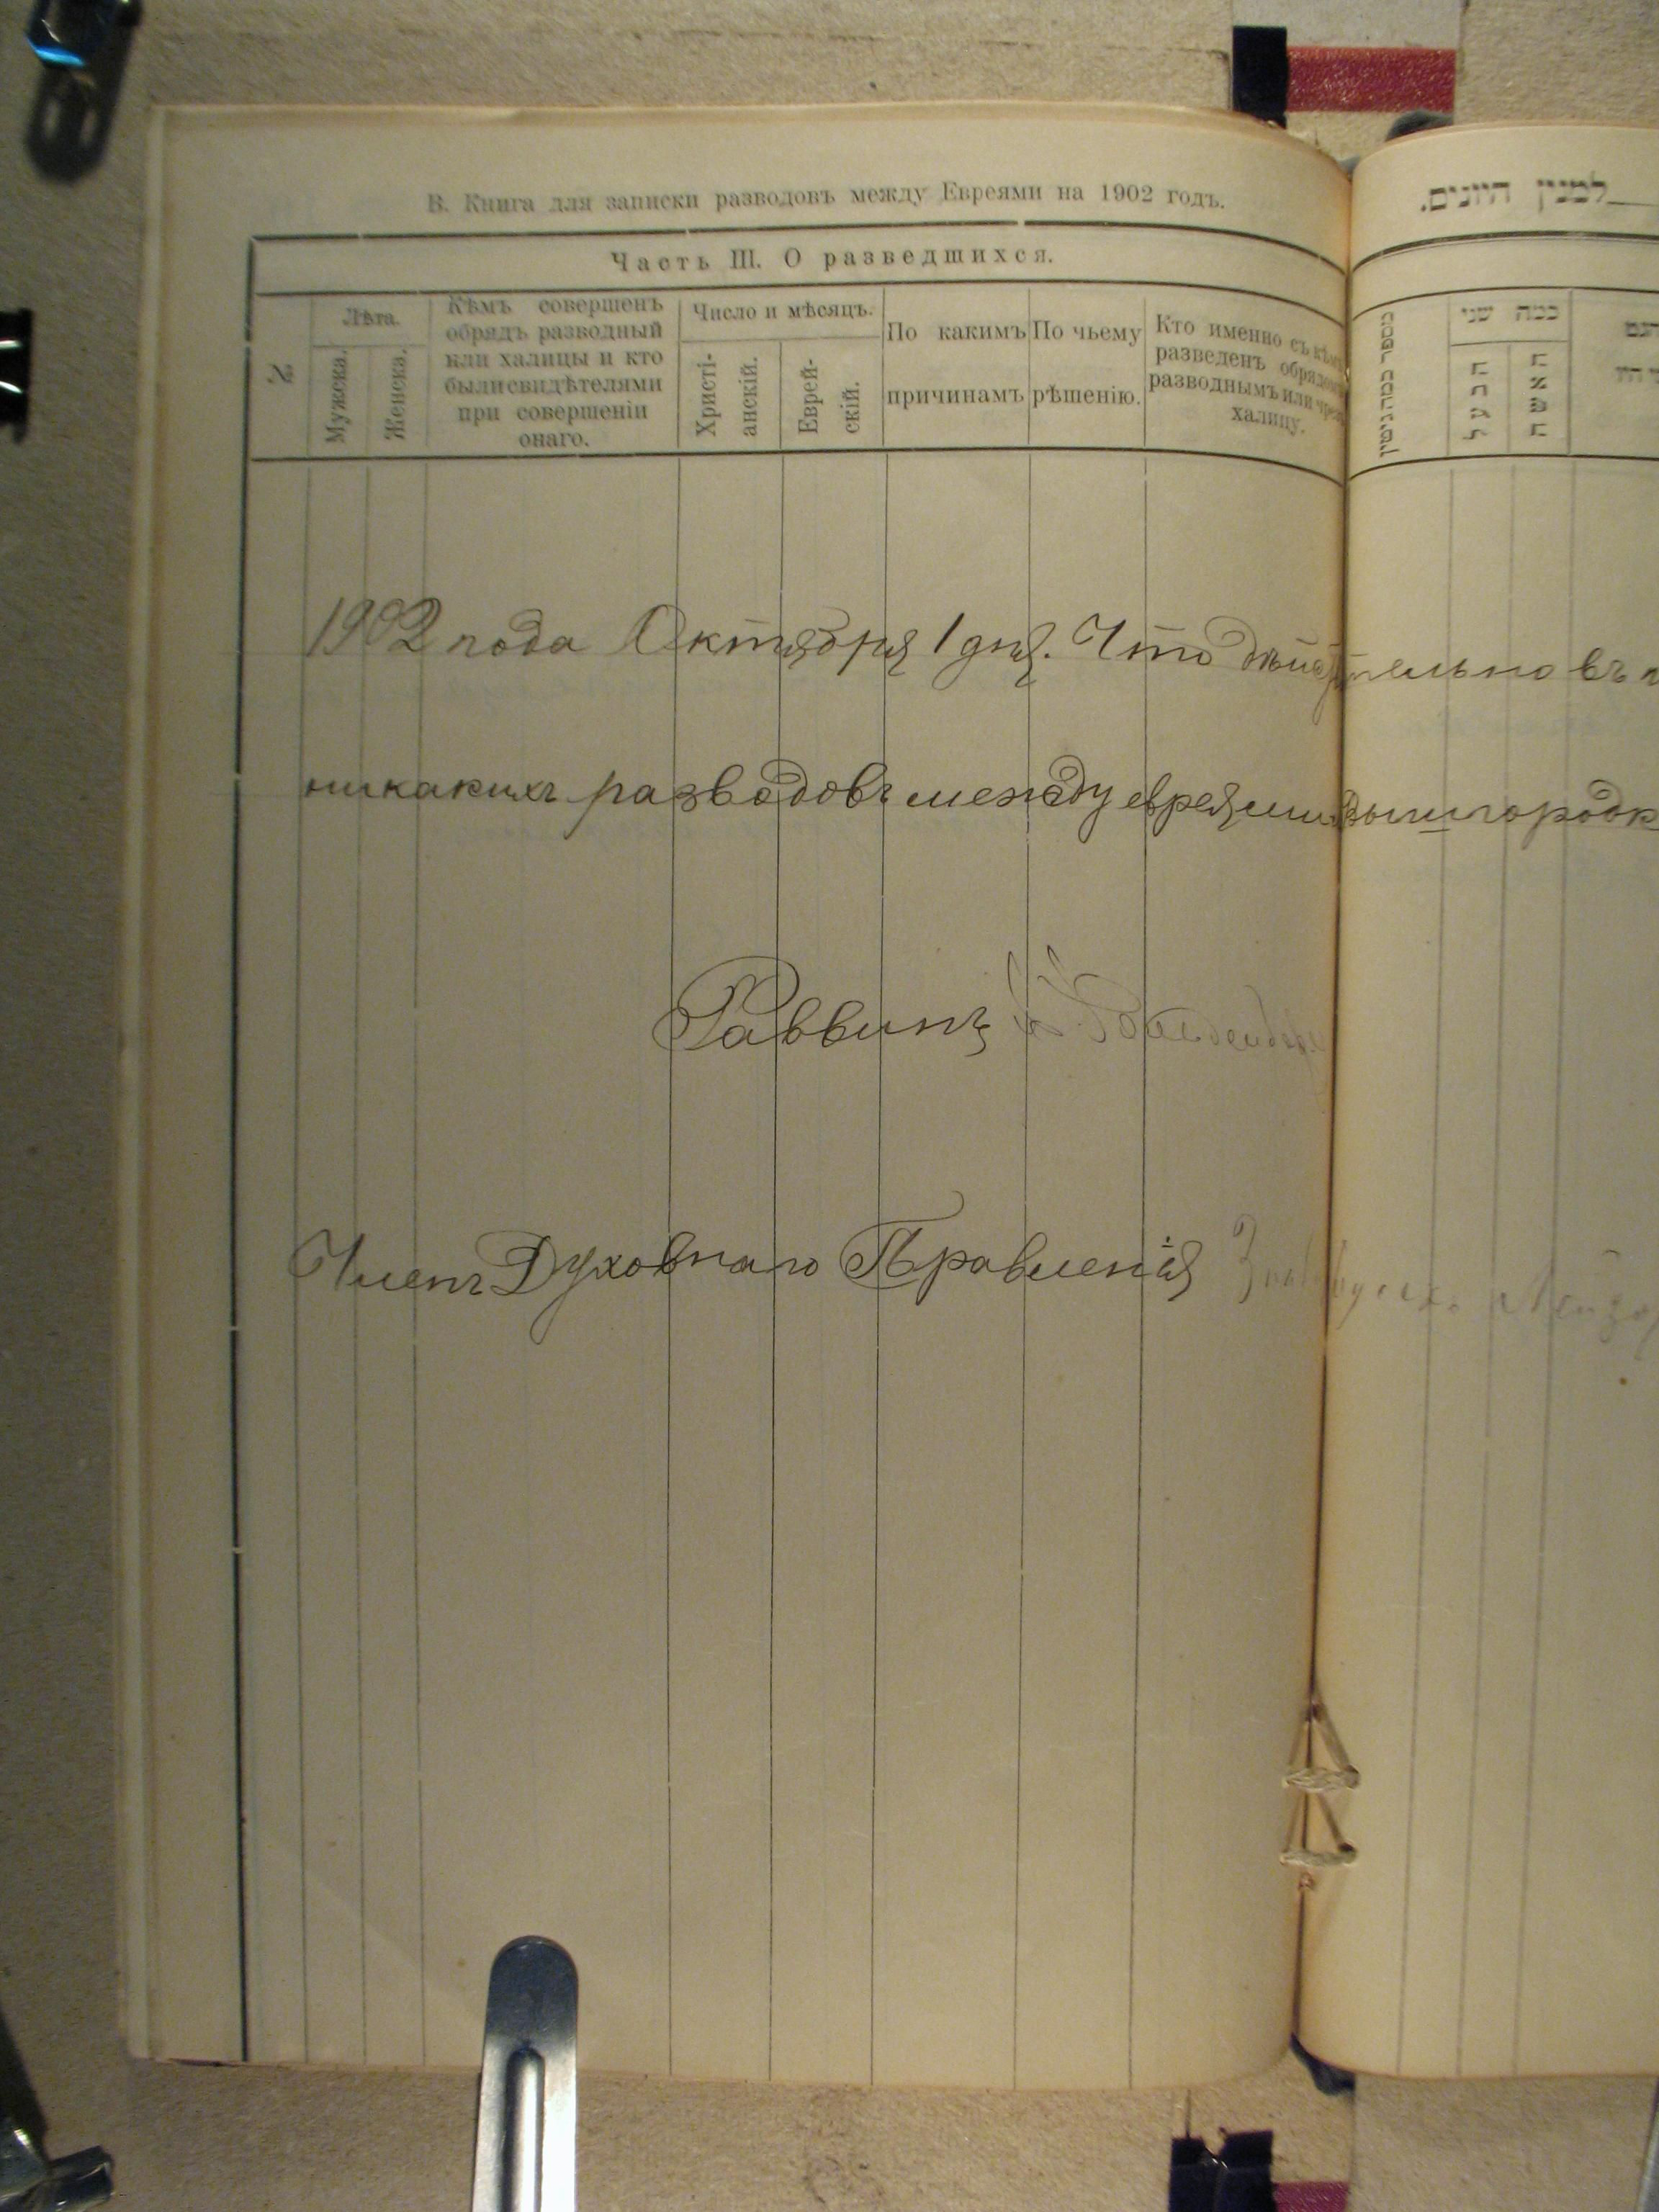 В. Книга для записки разводовъ между Евреями на 1902 годъ.
Часть III. О разведшихся.
№
Лѣта.
Мужска.
Женска.
Кѣмъ совершенъ
обрядъ разводный
или халицы и кто
были свидѣтелями
при совершеніи
онаго.
Число и мѣсяцъ.
Христі-
анскій.
Еврей-
скій.
По какимъ
причинамъ
По чьему
рѣшенію.
Кто именно съ кѣмъ
разведенъ обрядомъ
разводнымъ или чрезъ
халицу.
למנין היונים.
מספר כמה גטין
כמה שני
הבעל
האשה
1902 года Октября 1 дня. Что дѣйствительно въ
никакихъ разводовъ между евреями Вышгородк
Раввинъ
Членъ Духовнаго Правленія